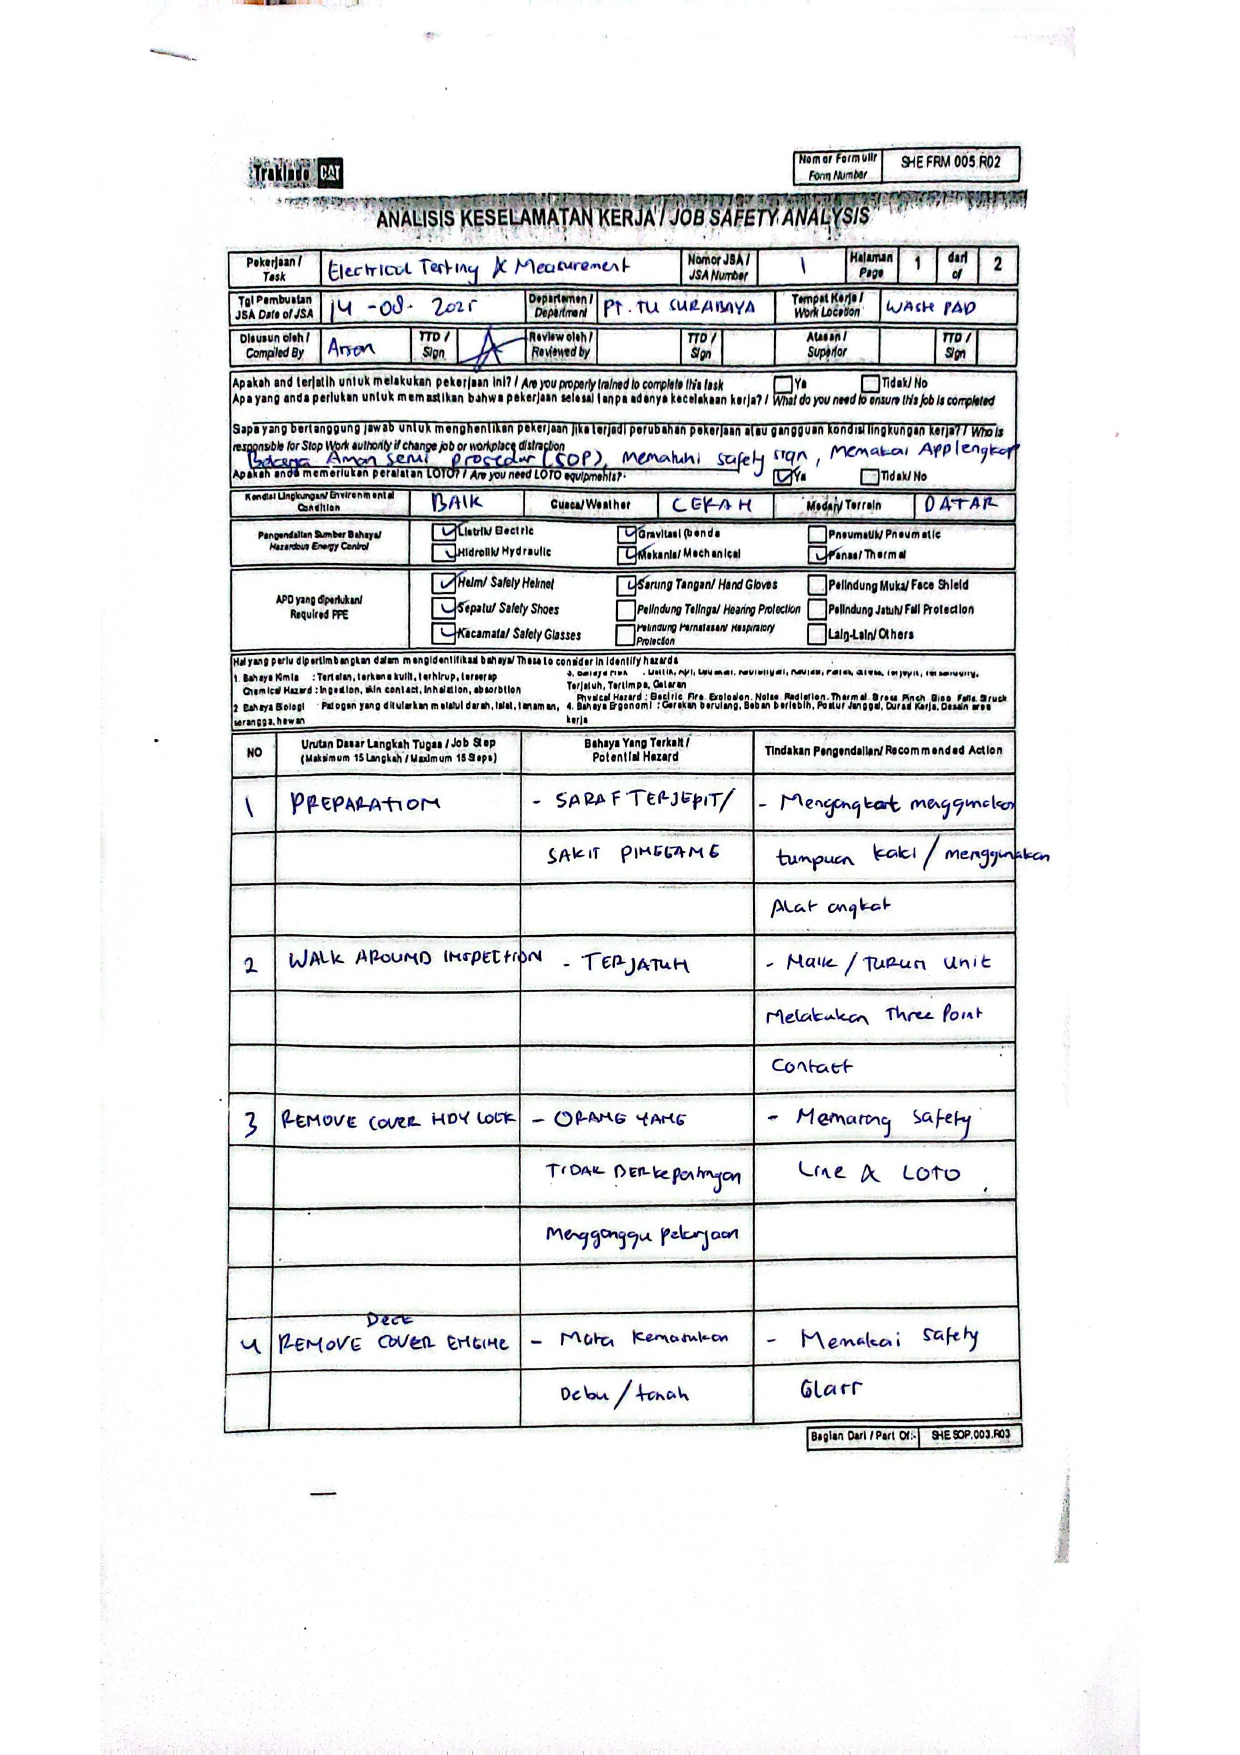 Trakindo CAT
Nomor Formulir
Form Number
SHE FRM 005 R02
ANALISIS KESELAMATAN KERJA / JOB SAFETY ANALYSIS
Pekerjaan /
Task
Electrical Testing & Measurement
Nomor JSA /
JSA Number
1
Halaman
Page
1
dari
of
2
Tgl Pembuatan
JSA Date of JSA
14 -08- 2025
Departemen /
Department
PT. TU SURABAYA
Tempat Kerja /
Work Location
WASH PAD
Disusun oleh /
Compiled By
TTD /
Sign
Review oleh /
Reviewed by
TTD /
Sign
Atasan /
Superior
TTD /
Sign
Apakah and terjatih untuk melakukan pekerjaan ini? / Are you properly trained to complete this task
Ya
Tidak/ No
Apa yang anda perlukan untuk memastikan bahwa pekerjaan selesai tanpa adanya kecelakaan kerja? / What do you need to ensure this job is completed
Sapa yang bertanggung jawab untuk menghentikan pekerjaan jika terjadi perubahan pekerjaan atau gangguan kondisi lingkungan kerja? / Who is
responsible for Stop Work authority if change job or workplace distraction
Aman prosedur (SOP), mematuhi safety sign, memakai App lengkap
Apakah anda memerlukan peralatan LOTO? / Are you need LOTO equipments?
Ya
Tidak/ No
Kondisi Lingkungan/ Environmental
Condition
BAIK
Cuaca/Weather
CERAH
Medan/ Terrain
DATAR
Pengendalian Sumber Bahaya/
Hazardous Energy Control
Listrik/ Electric
Gravitasi
Pneumatik/ Pneumatic
Hidrolik/ Hydraulic
Mekanis/ Mechanical
Panas/ Thermal
APD yang diperlukan/
Required PPE
Helm/ Safety Helmet
Sarung Tangan/ Hand Gloves
Pelindung Muka/ Face Shield
Sepatu/ Safety Shoes
Pelindung Telinga/ Hearing Protection
Pelindung Jatuh/ Fall Protection
Kacamata/ Safety Glasses
Pelindung Pernafasan/ Respiratory
Protection
Lain-Lain/ Others
Hal yang perlu dipertimbangkan dalam mengidentifikasi bahaya/ These to consider in Identify hazards
1. Bahaya Kimia : Tertelan, terkena kulit, terhirup, terserap
Chemical Hazard : Ingestion, skin contact, Inhalation, absorbtion
2 Bahaya Biologi Patogen yang ditularkan melalui darah, lalat, tanaman,
serangga, hewan
Terjatuh, Tertimpa, Getaran
Physical Hazard : Electric, Fire, Explosion, Noise, Radiation, Thermal, Stress, Pinch, Falls, Struck
4. Bahaya Ergonomi : Gerakan berulang, Beban berlebih, Postur Janggal, Durasi Kerja, Desain area
kerja
NO
Urutan Dasar Langkah Tugas / Job Step
(Maksimum 15 Langkah / Maximum 15 Steps)
Bahaya Yang Terkait /
Potential Hazard
Tindakan Pengendalian/ Recommended Action
1 PREPARATION - SARAF TERJEPIT/ - Mengangkat menggunakan
SAKIT PINGGANG tumpuan kaki / menggunakan
Alat angkat
2 WALK AROUND INSPECTION - TERJATUH - Naik / Turun unit
Melakukan Three Point
Contact
3 REMOVE COVER HDY LOCK - ORANG YANG - Memasang safety
TIDAK BERkepentingan Line & LOTO
Mengganggu pekerjaan
Deck
4 REMOVE COVER ENGINE - Mata Kemasukan - Memakai safety
Debu / tanah Glass
Bagian Dari / Part Of:-
SHE SOP.003.R03